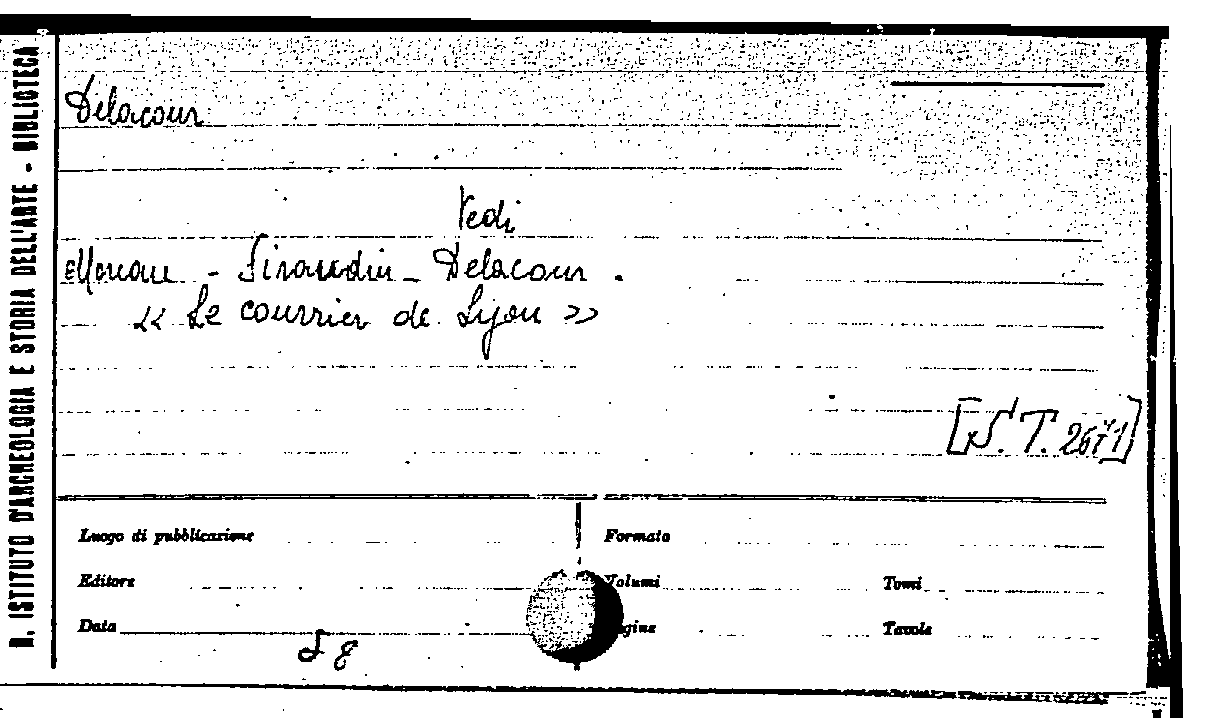 R. ISTITUTO D'ARCHEOLOGIA E STORIA DELL'ARTE - BIBLIOTECA
Delacour
Vedi
Moreau - Siraudin - Delacour.
« Le courrier de Lyon »
[S. T. 2671]
Luogo di pubblicazione
Formato
Editore
Volumi
Tomi
Data
Pagine
Tavole